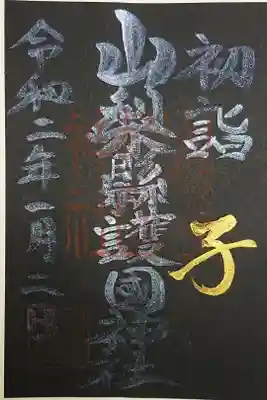 初詣
子
山梨縣護國神社
令和二年一月二日